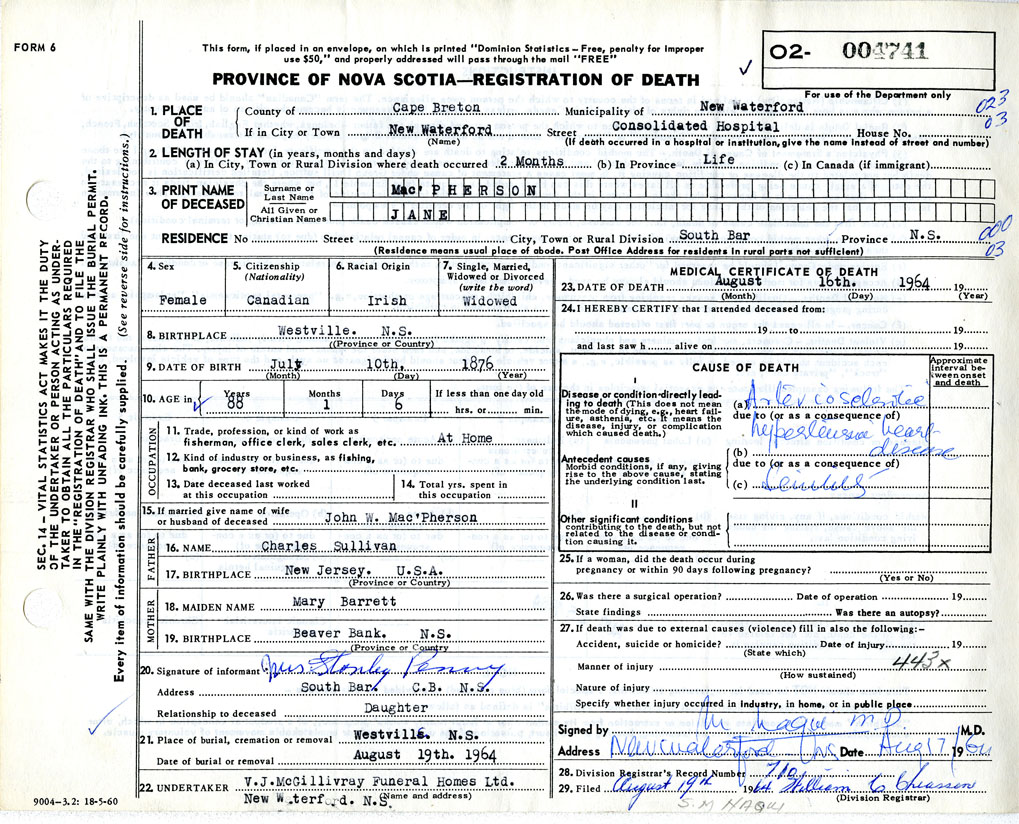 FORM 6
This form, if placed in an envelope, on which is printed "Dominion Statistics – Free, penalty for improper
use $50," and properly addressed will pass through the mail "FREE"
PROVINCE OF NOVA SCOTIA—REGISTRATION OF DEATH
✓
O2- 004741
For use of the Department only
023
03
1. PLACE OF DEATH
County of Cape Breton Municipality of New Waterford
If in City or Town New Waterford Street Consolidated Hospital House No.
(Name) (If death occurred in a hospital or institution, give the name instead of street and number)
2. LENGTH OF STAY (in years, months and days)
(a) In City, Town or Rural Division where death occurred 2 Months (b) In Province Life (c) In Canada (if immigrant)
3. PRINT NAME OF DECEASED
Surname or Last Name Mac' PHERSON
All Given or Christian Names JANE
000
03
RESIDENCE No Street City, Town or Rural Division South Bar Province N.S.
(Residence means usual place of abode. Post Office Address for residents in rural parts not sufficient)
4. Sex Female
5. Citizenship (Nationality) Canadian
6. Racial Origin Irish
7. Single, Married, Widowed or Divorced (write the word) Widowed
8. BIRTHPLACE Westville. N.S.
(Province or Country)
9. DATE OF BIRTH July 10th, 1876
(Month) (Day) (Year)
10. AGE in ✓ Years 88 Months 1 Days 6 If less than one day old hrs. or min.
OCCUPATION
11. Trade, profession, or kind of work as
fisherman, office clerk, sales clerk, etc. At Home
12. Kind of industry or business, as fishing,
bank, grocery store, etc.
13. Date deceased last worked
at this occupation
14. Total yrs. spent in
this occupation
15. If married give name of wife
or husband of deceased John W. Mac'Pherson
FATHER
16. NAME Charles Sullivan
17. BIRTHPLACE New Jersey. U.S.A.
(Province or Country)
MOTHER
18. MAIDEN NAME Mary Barrett
19. BIRTHPLACE Beaver Bank. N.S.
(Province or Country)
20. Signature of informant Mrs. Stanley Penny
Address South Bar. C.B. N.S.
Relationship to deceased Daughter
21. Place of burial, cremation or removal Westville. N.S.
Date of burial or removal August 19th. 1964
22. UNDERTAKER V.J.McGillivray Funeral Homes Ltd.
New Waterford. N.S. (Name and address)
9004-3.2: 18-5-60
MEDICAL CERTIFICATE OF DEATH
23. DATE OF DEATH August 16th. 1964 19
(Month) (Day) (Year)
24. I HEREBY CERTIFY that I attended deceased from:
19 to 19
and last saw h alive on 19
CAUSE OF DEATH
Approximate interval between onset and death
I
Disease or condition directly leading to death (This does not mean
the mode of dying, e.g., heart failure, asthenia, etc. It means the
disease, injury, or complication
which caused death.)
(a) Arteriosclerotic
due to (or as a consequence of)
hypertensive heart
(b) disease
Antecedent causes
Morbid conditions, if any, giving
rise to the above cause, stating
the underlying condition last.
due to (or as a consequence of)
(c) Senility
II
Other significant conditions
contributing to the death, but not
related to the disease or condition causing it.
25. If a woman, did the death occur during
pregnancy or within 90 days following pregnancy?
(Yes or No)
26. Was there a surgical operation? Date of operation 19
State findings Was there an autopsy?
27. If death was due to external causes (violence) fill in also the following:–
Accident, suicide or homicide? Date of injury 19
(State which)
Manner of injury 443x
(How sustained)
Nature of injury
Specify whether injury occurred in industry, in home, or in public place
Signed by M Naqui M.D. M.D.
Address New Waterford NS Date Aug 17 1964
28. Division Registrar's Record Number 710
29. Filed August 19th 1964 William C Chiasson
(Division Registrar)
S. M NAQUI
SEC. 14 – VITAL STATISTICS ACT MAKES IT THE DUTY
OF THE UNDERTAKER OR PERSON ACTING AS UNDERTAKER TO OBTAIN ALL THE PARTICULARS REQUIRED
IN THE "REGISTRATION OF DEATH" AND TO FILE THE
SAME WITH THE DIVISION REGISTRAR WHO SHALL ISSUE THE BURIAL PERMIT.
WRITE PLAINLY WITH UNFADING INK. THIS IS A PERMANENT RECORD.
Every item of information should be carefully supplied. (See reverse side for instructions.)